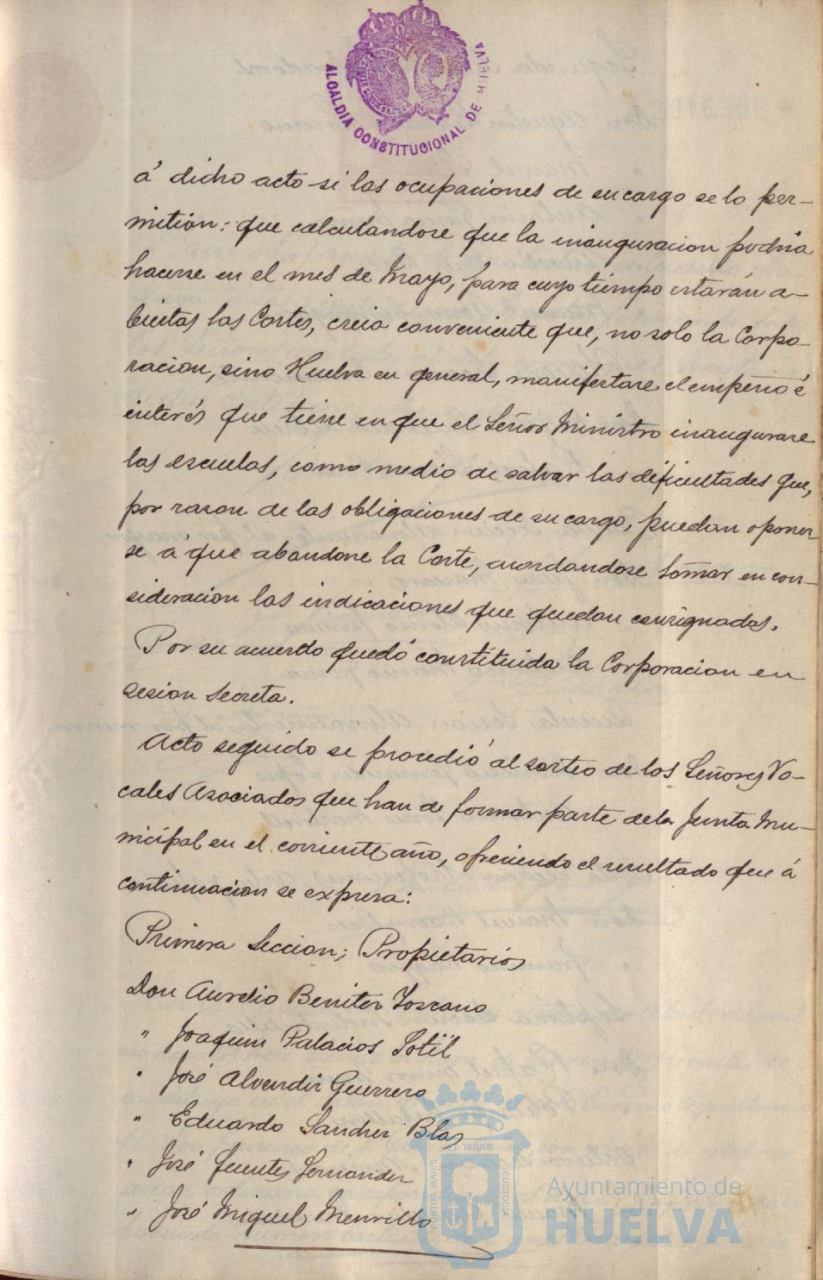 ALCALDIA CONSTITUCIONAL DE HUELVA
á dicho acto si las ocupaciones de su cargo se lo per-
mitión: que calculandose que la inauguracion podria
hacerse en el mes de Mayo, para cuyo tiempo estarán a-
biertas las Cortes, creia conveniente que, no solo la Corpo-
racion, sino Huelva en general, manifestase el empeño é
interés que tiene en que el Señor Ministro inaugurase
las escuelas, como medio de salvar las dificultades que,
por razon de las obligaciones de su cargo, puedan oponer-
se á que abandone la Corte, acordandose tomar en con-
sideracion las indicaciones que quedan consignadas.
Por su acuerdo quedó constituida la Corporacion en
sesion secreta.
Acto seguido se procedió al sorteo de los Señores Vo-
cales Asociados que han de formar parte de la Junta Mu-
nicipal en el corriente año, ofreciendo el resultado que á
continuacion se expresa:
Primera Seccion; Propietarios
Don Aurelio Benitez Toscano
" Joaquin Palacios Sotil
" José Alvendir Guerrero
" Eduardo Sanchez Blas
" José Fuentes Fernandez
" José Miguel
PORTUS MARIS ET TERRÆ CUSTODIA
Ayuntamiento de
HUELVA